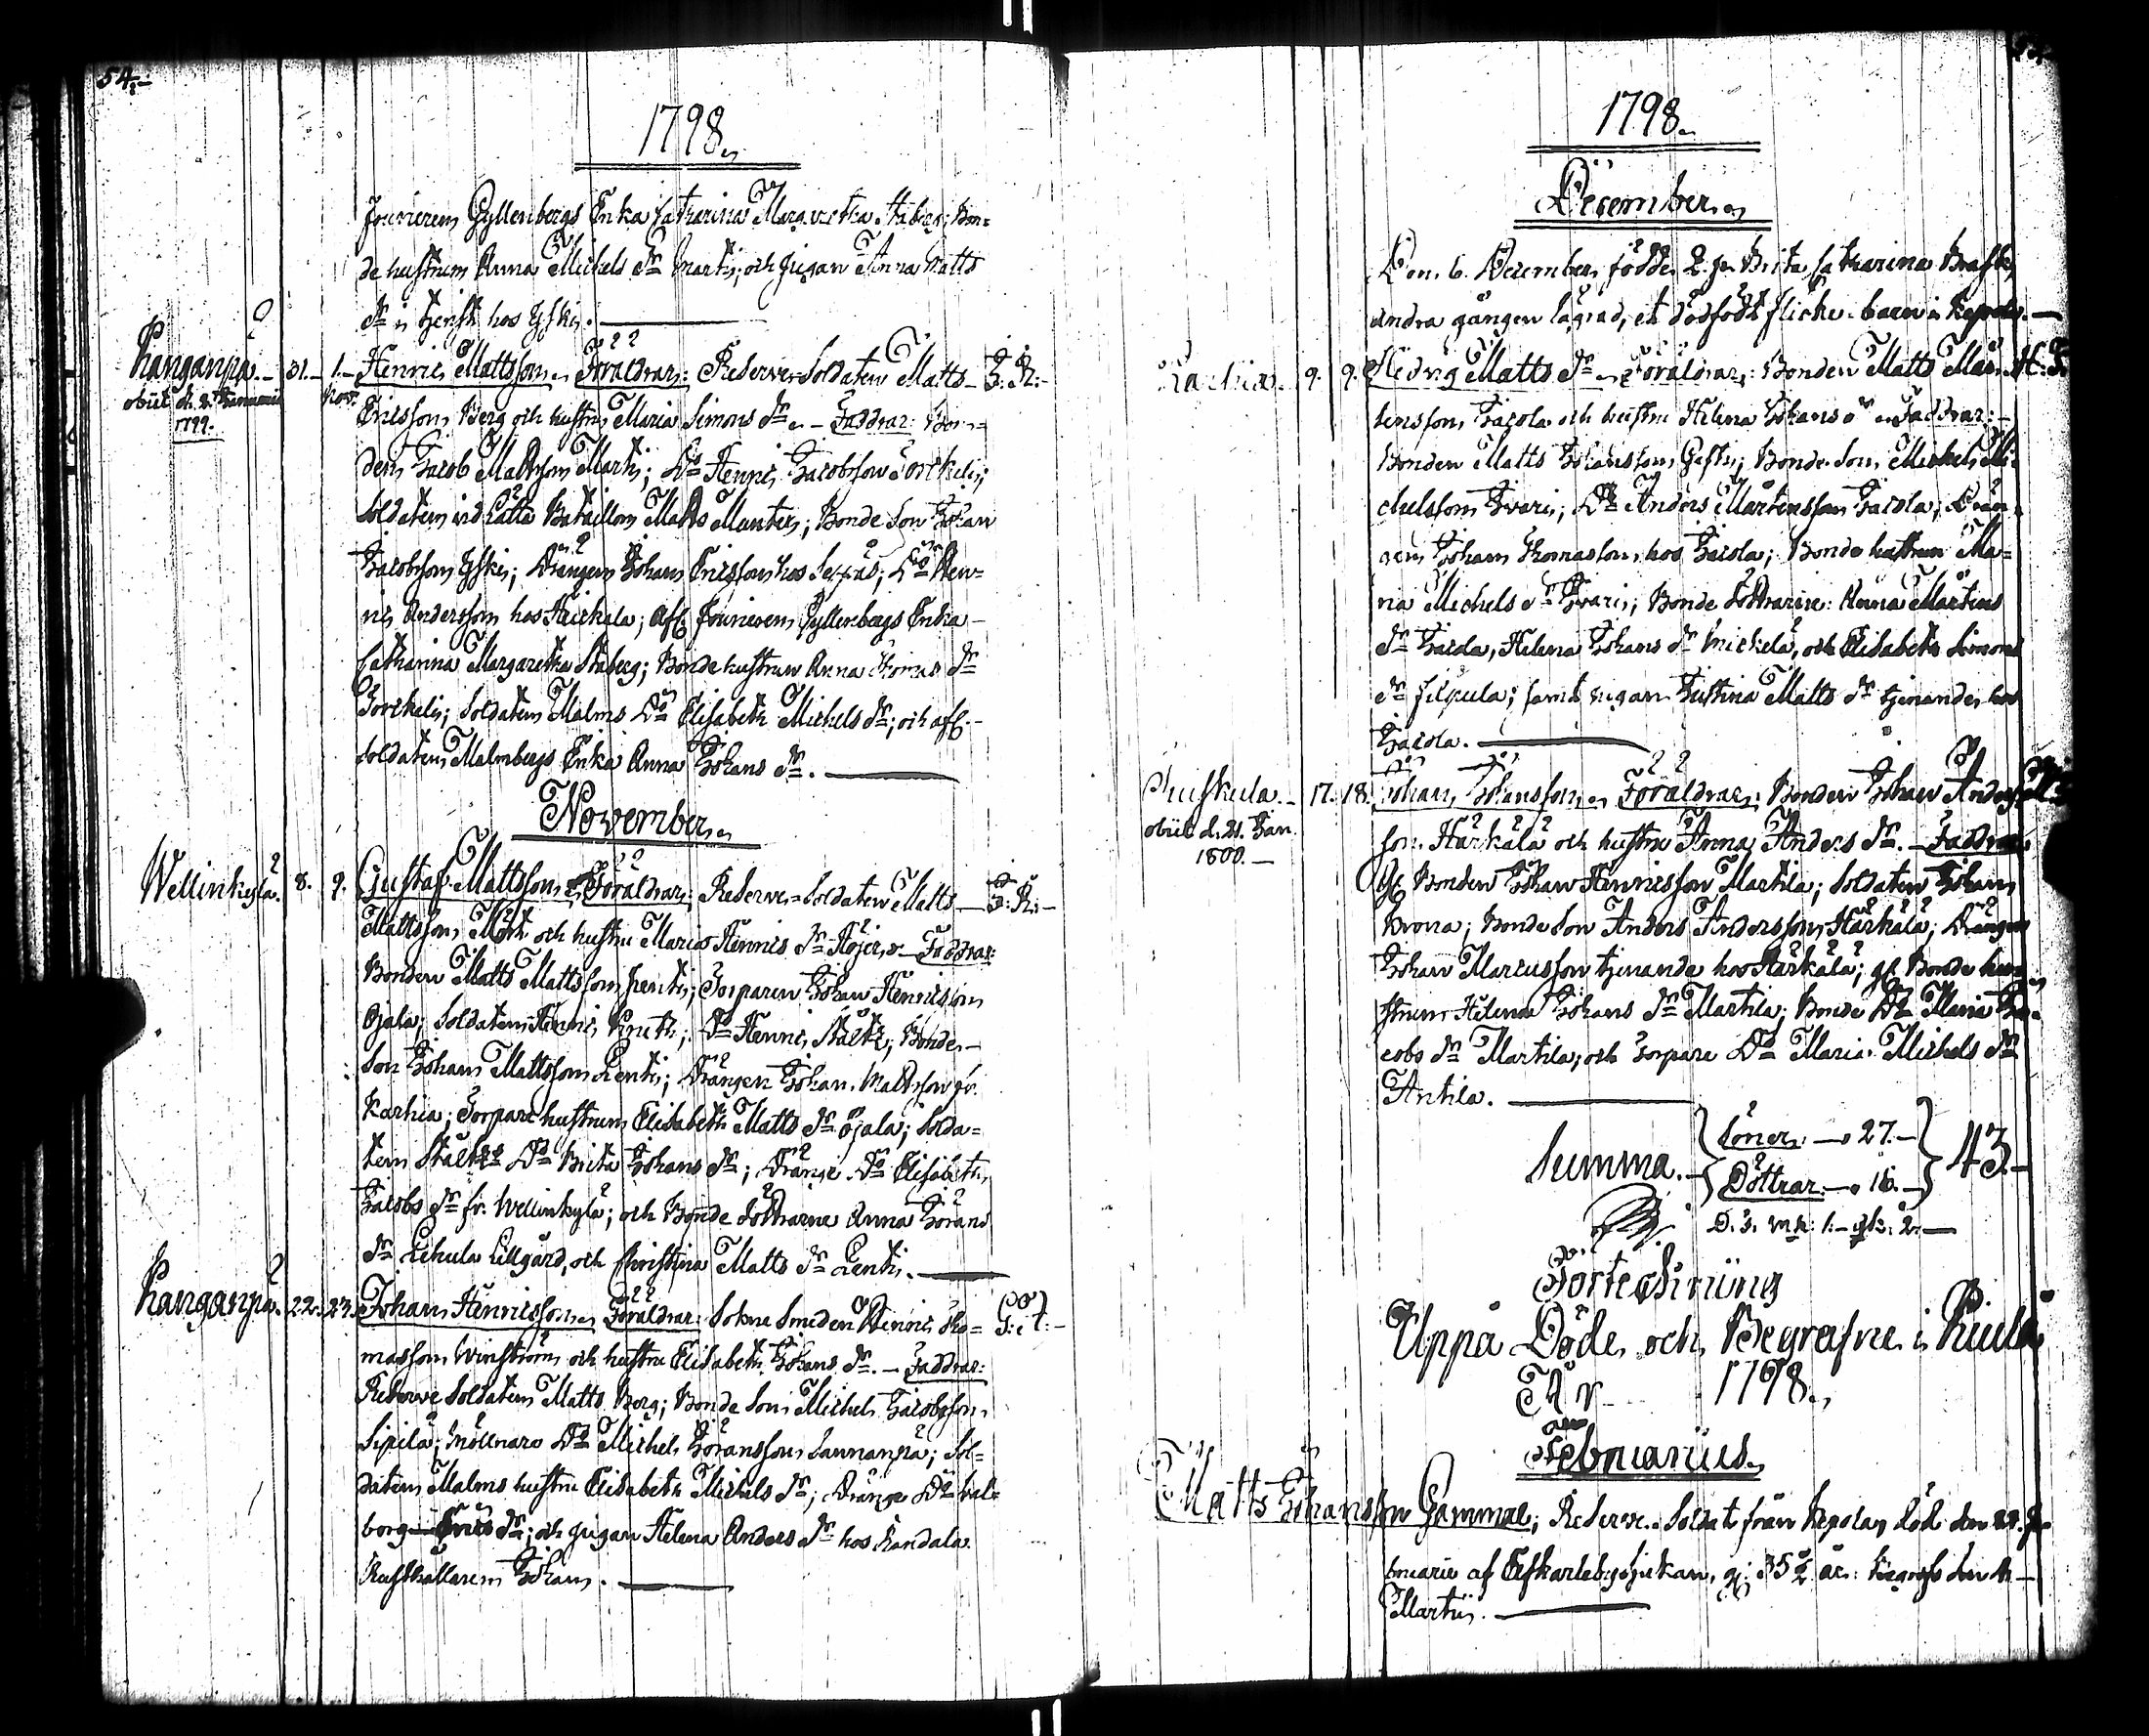 54.-
1798.
Fourierens Gyllenbergs Enka Catharina Margaretha Staberg; Bon-
de hustrun Anna Michels Dr Martis; och Pigan Anna Matts
Dr i tjenst hos Yskis.
Kanganpä. 31. 1. Henric Mattsson. Föräldrar: Reserve Soldaten Matts
obiit d. 2. Januarii Nov.
1799.
Ericsson Berg och hustru Maria Simons Dr. - Faddrar: Bon-
den Jacob Mattsson Martis; Do Henric Jacobsson Torckelis;
Soldaten vid Lätta Bataillon Matts Munter; Bonde Son Johan
Jacobsson Yskis; Drängen Johan Ericsson hos Seppäs; Do Hen-
ric Andersson hos Heickala; Afl. Fourierens Gyllenbergs Enka
Catharina Margaretha Staberg; Bonde hustrun Anna Thomas Dr
Torckelis; Soldaten Malms Do Elisabeth Michels Dr; och afl.
Soldaten Malmbergs Enka Anna Johans Dr.
November.
Wellinkylä. 8. 9. Gustaf Mattsson. Föräldrar: Reserve-Soldaten Matts
Mattsson Mört och hustru Maria Henrics Dr Höijer. Faddrar:
Bonden Matts Mattsson Pentis; Torparen Johan Henricsson
Ojala; Soldaten Henric; Do Henric Stält; Bonde-
Son Johan Mattsson Lentis; Drängen Johan Mattsson fr.
Karhia; Torpare hustrun Elisabeth Matts Dr Ojala; Solda-
ten Stälts Do Brita Johans Dr; Dränge Do Elisabeth
Jacobs Dr fr. Wellinkylä; och Bonde döttrarne Anna Görans
Dr Lekula Lillgård, och Christina Matts Dr Lentis.
Kanganpä. 22. 23. Johan Henricsson. Föräldrar: Sokne Smeden Henric Tho-
massson Winström och hustru Elisabeth Johans Dr. - Faddrar:
Reserve Soldaten Matts Berg; Bonde Son Michel Jacobsson
Sipilä; Möllnare Do Michel Göransson Sannanpä; Sol-
daten Malms hustru Elisabeth Michels Dr; Dränge Do Wal-
borg Erics Dr; och Pigan Helena Anders Dr hos Kandala
Rusthållaren Johan.
1798.
December.
Den 6. December födde Q.p. Brita Catharina Brask,
andra gången lägrad, et dödfödt flicke-barn i Kepola.
Karhia. 9. 9. Hedvig Matts Dr. Föräldrar: Bonden Matts Mår-
tensson Jacola och hustru Helena Johans Dr. Faddrar:
Bonden Matts Johansson; Bonde Son Michel Mi-
chelsson Ivaris; Do Anders Mårtensson Jacola; Drän-
gen Johan Thomasson hos Jacola; Bonde hustrun Ma-
ria Michels Dr Ivaris; Bonde Döttrarne: Anna Mårtens
Dr Jacola, Helena Johans Dr Mickela, och Elisabeth Simons
Dr Filpula; samt Pigan Justina Matts Dr tjenande hos
Jacola.
17. 18. Johan Johansson. Föräldrar: Bonden Johan Anders-
obiit d. 21. Jan.
1800.
son Härkälä och hustru Anna Anders Dr. - Faddrar:
Gl. Bonden Johan Henricsson Martila; Soldaten Johan
Brona; Bonde Son Anders Andersson Härkälä; Drängen
Johan Marcusson tjenande hos Härkälä; gl. Bonde hu-
strun Helena Johans Dr Martila; Bonde Do Maria Ja-
cobs Dr Martila; och Torpare Do Maria Michels Dr
Antila.
Summa. Söner 27. Döttrar 16. 43.
Förteckning
Uppå Döde och Begrafne i Kiula
År 1798.
Februarius.
Matts Johansson Gammal, Reserve-Soldat från Kepola, död den 22. Fe-
bruarii af Efkarleby sjukan, g: 35 1/2 år: begrofs den 4.
Martii.